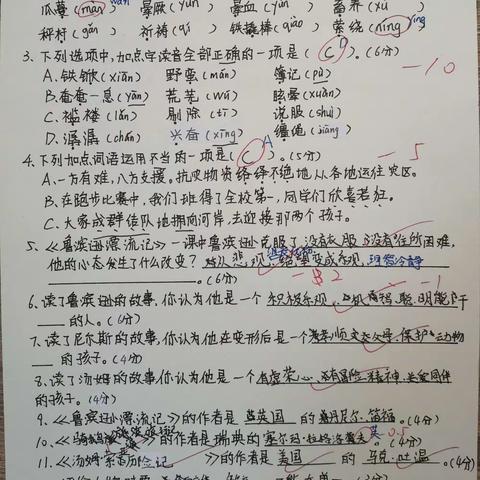 瓜蔓(màn) wàn 晕厥(yūn) 晕血(yùn) 畜养(xù)
秤杆(gǎn) 祈祷(qí) 铁锹(qiāo) 萦绕(níng) yíng
3、下列选项中,加点字读音全部正确的一项是( C )。(6分) -10
A.铁锨(xiān) 野蛮(mán) 簿记(pù)
B.奄奄一息(yān) 荒芜(wú) 眩晕(xuàn)
C.褴褛(lán) 剔除(tī) 说服(shuì)
D.潺潺(chán) 兴奋(xīng) 缰绳(jiāng)
4、下列加点词语运用不当的一项是( C ) A。(5分) -5
A.一方有难,八方支援。抗疫物资络绎不绝地从各地运往灾区。
B.在跑步比赛中,我们班得了全校第一,同学们欣喜若狂。
C.大家成群结队地拥向河岸,去迎接那两个孩子。
5、《鲁滨逊漂流记》一课中鲁滨逊克服了没有衣服 没有住所困难,
他的心态发生了什么改变? 从悲观、绝望变成乐观、理智冷静
。(6分) -2
6、读了鲁滨逊的故事,你认为他是一个积极乐观、聪明能干 -1
的人。(6分)
7、读了尼尔斯的故事,你认为他在变形后是一个孝顺父母、保护动物
的孩子。(4分)
8、读了汤姆的故事你认为他是一个有虚荣心、有冒险精神、关爱同伴
的孩子。(4分)
9、《鲁滨逊漂流记》的作者是英国的丹尼尔·笛福。(4分)
10、《骑鹅旅行记》的作者是瑞典的塞尔玛·拉格洛夫。(4分) 0.5
11、《汤姆·索亚历险记》的作者是美国的马克·吐温。(4分)